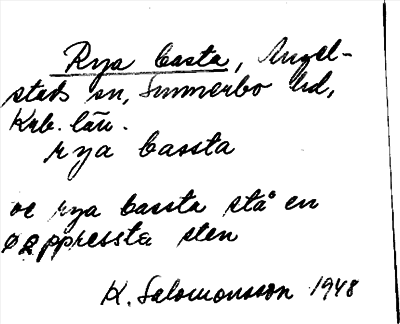 Rya basta, Angel-
stads sn, Sunnerbo hd,
Krb. län.
rya bassta
ve rya bassta stå en
øppressta sten
K. Salomonsson 1948